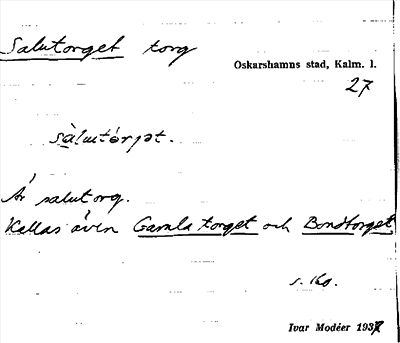 Salutorget torg
Oskarshamns stad, Kalm. l.
27
sàlutórjət.
Är salutorg.
Kallas även Gamla torget och Bondtorget
s. 160.
Ivar Modéer 1937